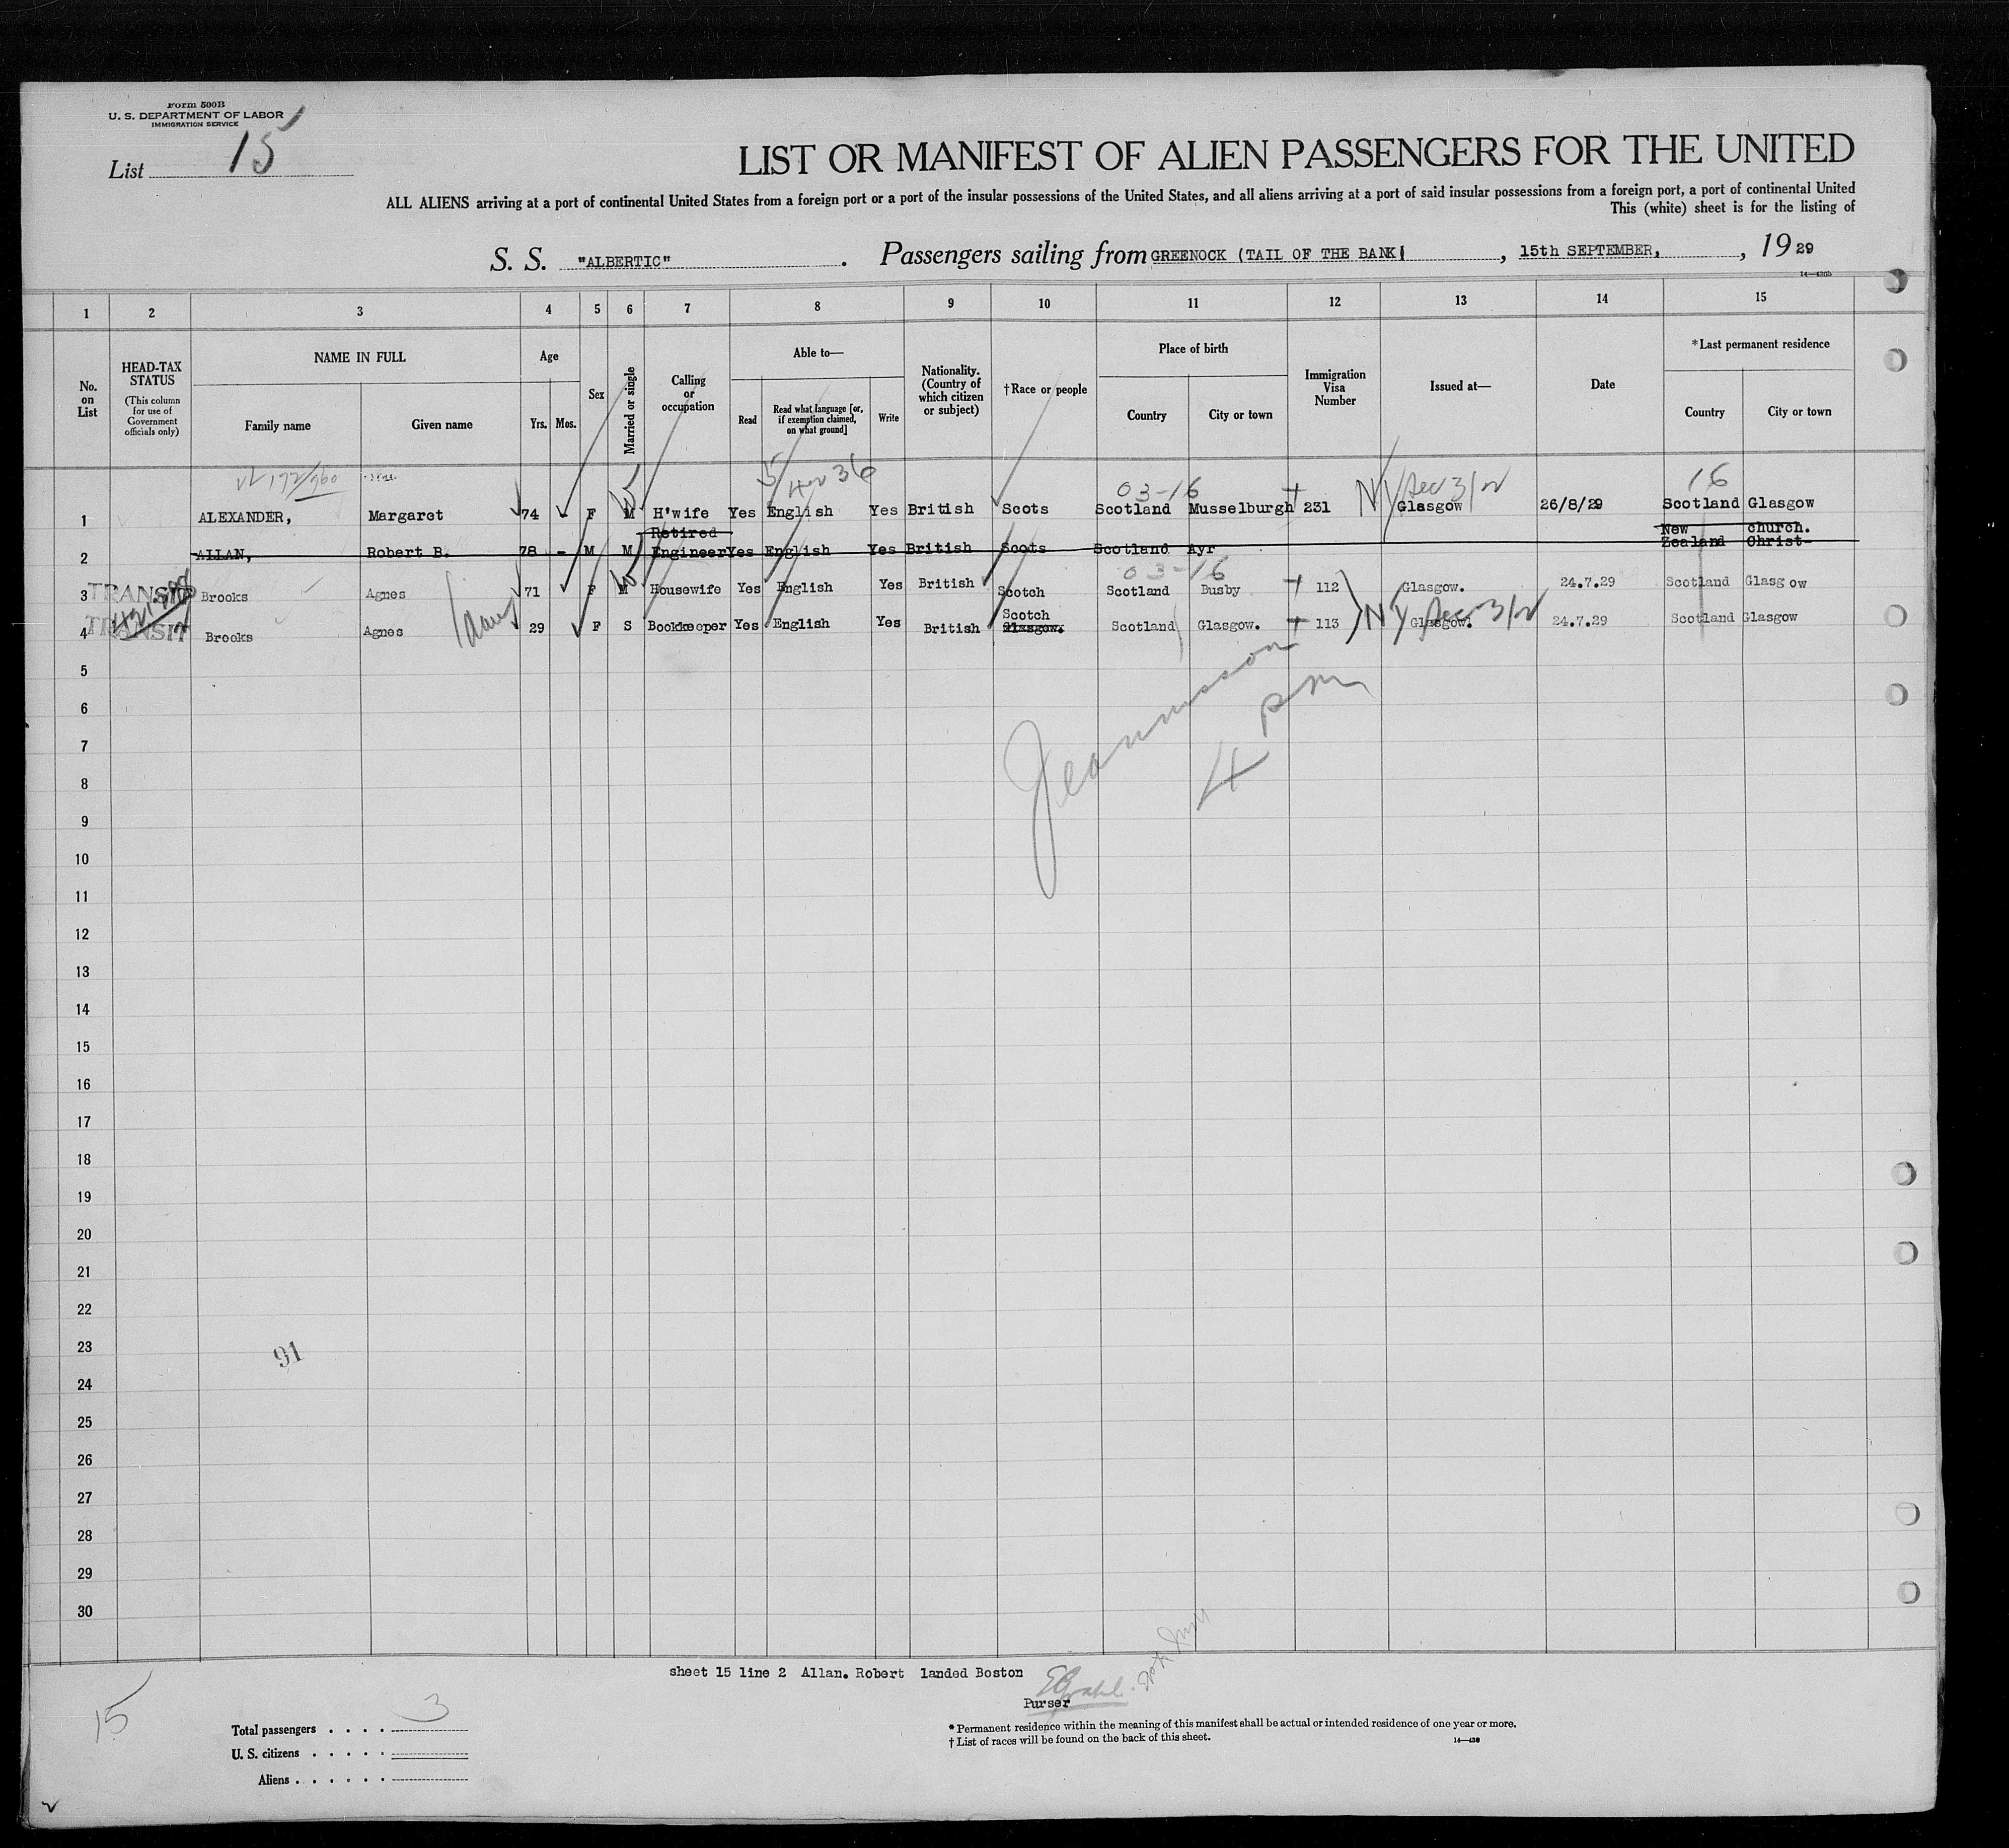 Form 500B
U. S. DEPARTMENT OF LABOR
IMMIGRATION SERVICE
List 15
LIST OR MANIFEST OF ALIEN PASSENGERS FOR THE UNITED
ALL ALIENS arriving at a port of continental United States from a foreign port or a port of the insular possessions of the United States, and all aliens arriving at a port of said insular possessions from a foreign port, a port of continental United
This (white) sheet is for the listing of
S. S. "ALBERTIC" . Passengers sailing from GREENOCK (TAIL OF THE BANK) , 15th SEPTEMBER, , 19 29
1 2 3 4 5 6 7 8 9 10 11 12 13 14 15
No. on List
HEAD-TAX STATUS
(This column for use of Government officials only)
NAME IN FULL
Family name Given name
Age
Yrs. Mos.
Sex
Married or single
Calling or occupation
Able to—
Read
Read what language [or, if exemption claimed, on what ground]
Write
Nationality. (Country of which citizen or subject)
†Race or people
Place of birth
Country City or town
Immigration Visa Number
Issued at—
Date
*Last permanent residence
Country City or town
5 36 03-16 16
1 ALEXANDER, Margaret 74 - F M H'wife Yes English Yes British Scots Scotland Musselburgh 231 NY Glasgow 26/8/29 Scotland Glasgow
2 ALLAN, Robert B. 78 - M M Retired Engineer Yes English Yes British Scots Scotland Ayr New Zealand Christ-church.
03-16
3 TRANSIT Brooks Agnes 71 F M Housewife Yes English Yes British Scotch Scotland Busby 112 Glasgow. 24.7.29 Scotland Glasgow
4 TRANSIT Brooks Agnes 29 F S Bookkeeper Yes English Yes British Scotch Glasgow. Scotland Glasgow. 113 NY Glasgow. 24.7.29 Scotland Glasgow
5
6
4 pm
7
8
9
10
11
12
13
14
15
16
17
18
19
20
21
22
23
91
24
25
26
27
28
29
30
sheet 15 line 2 Allan. Robert landed Boston
Purser
15
Total passengers . . . . 3
U. S. citizens . . . . .
Aliens . . . . . .
* Permanent residence within the meaning of this manifest shall be actual or intended residence of one year or more.
† List of races will be found on the back of this sheet.
14—430